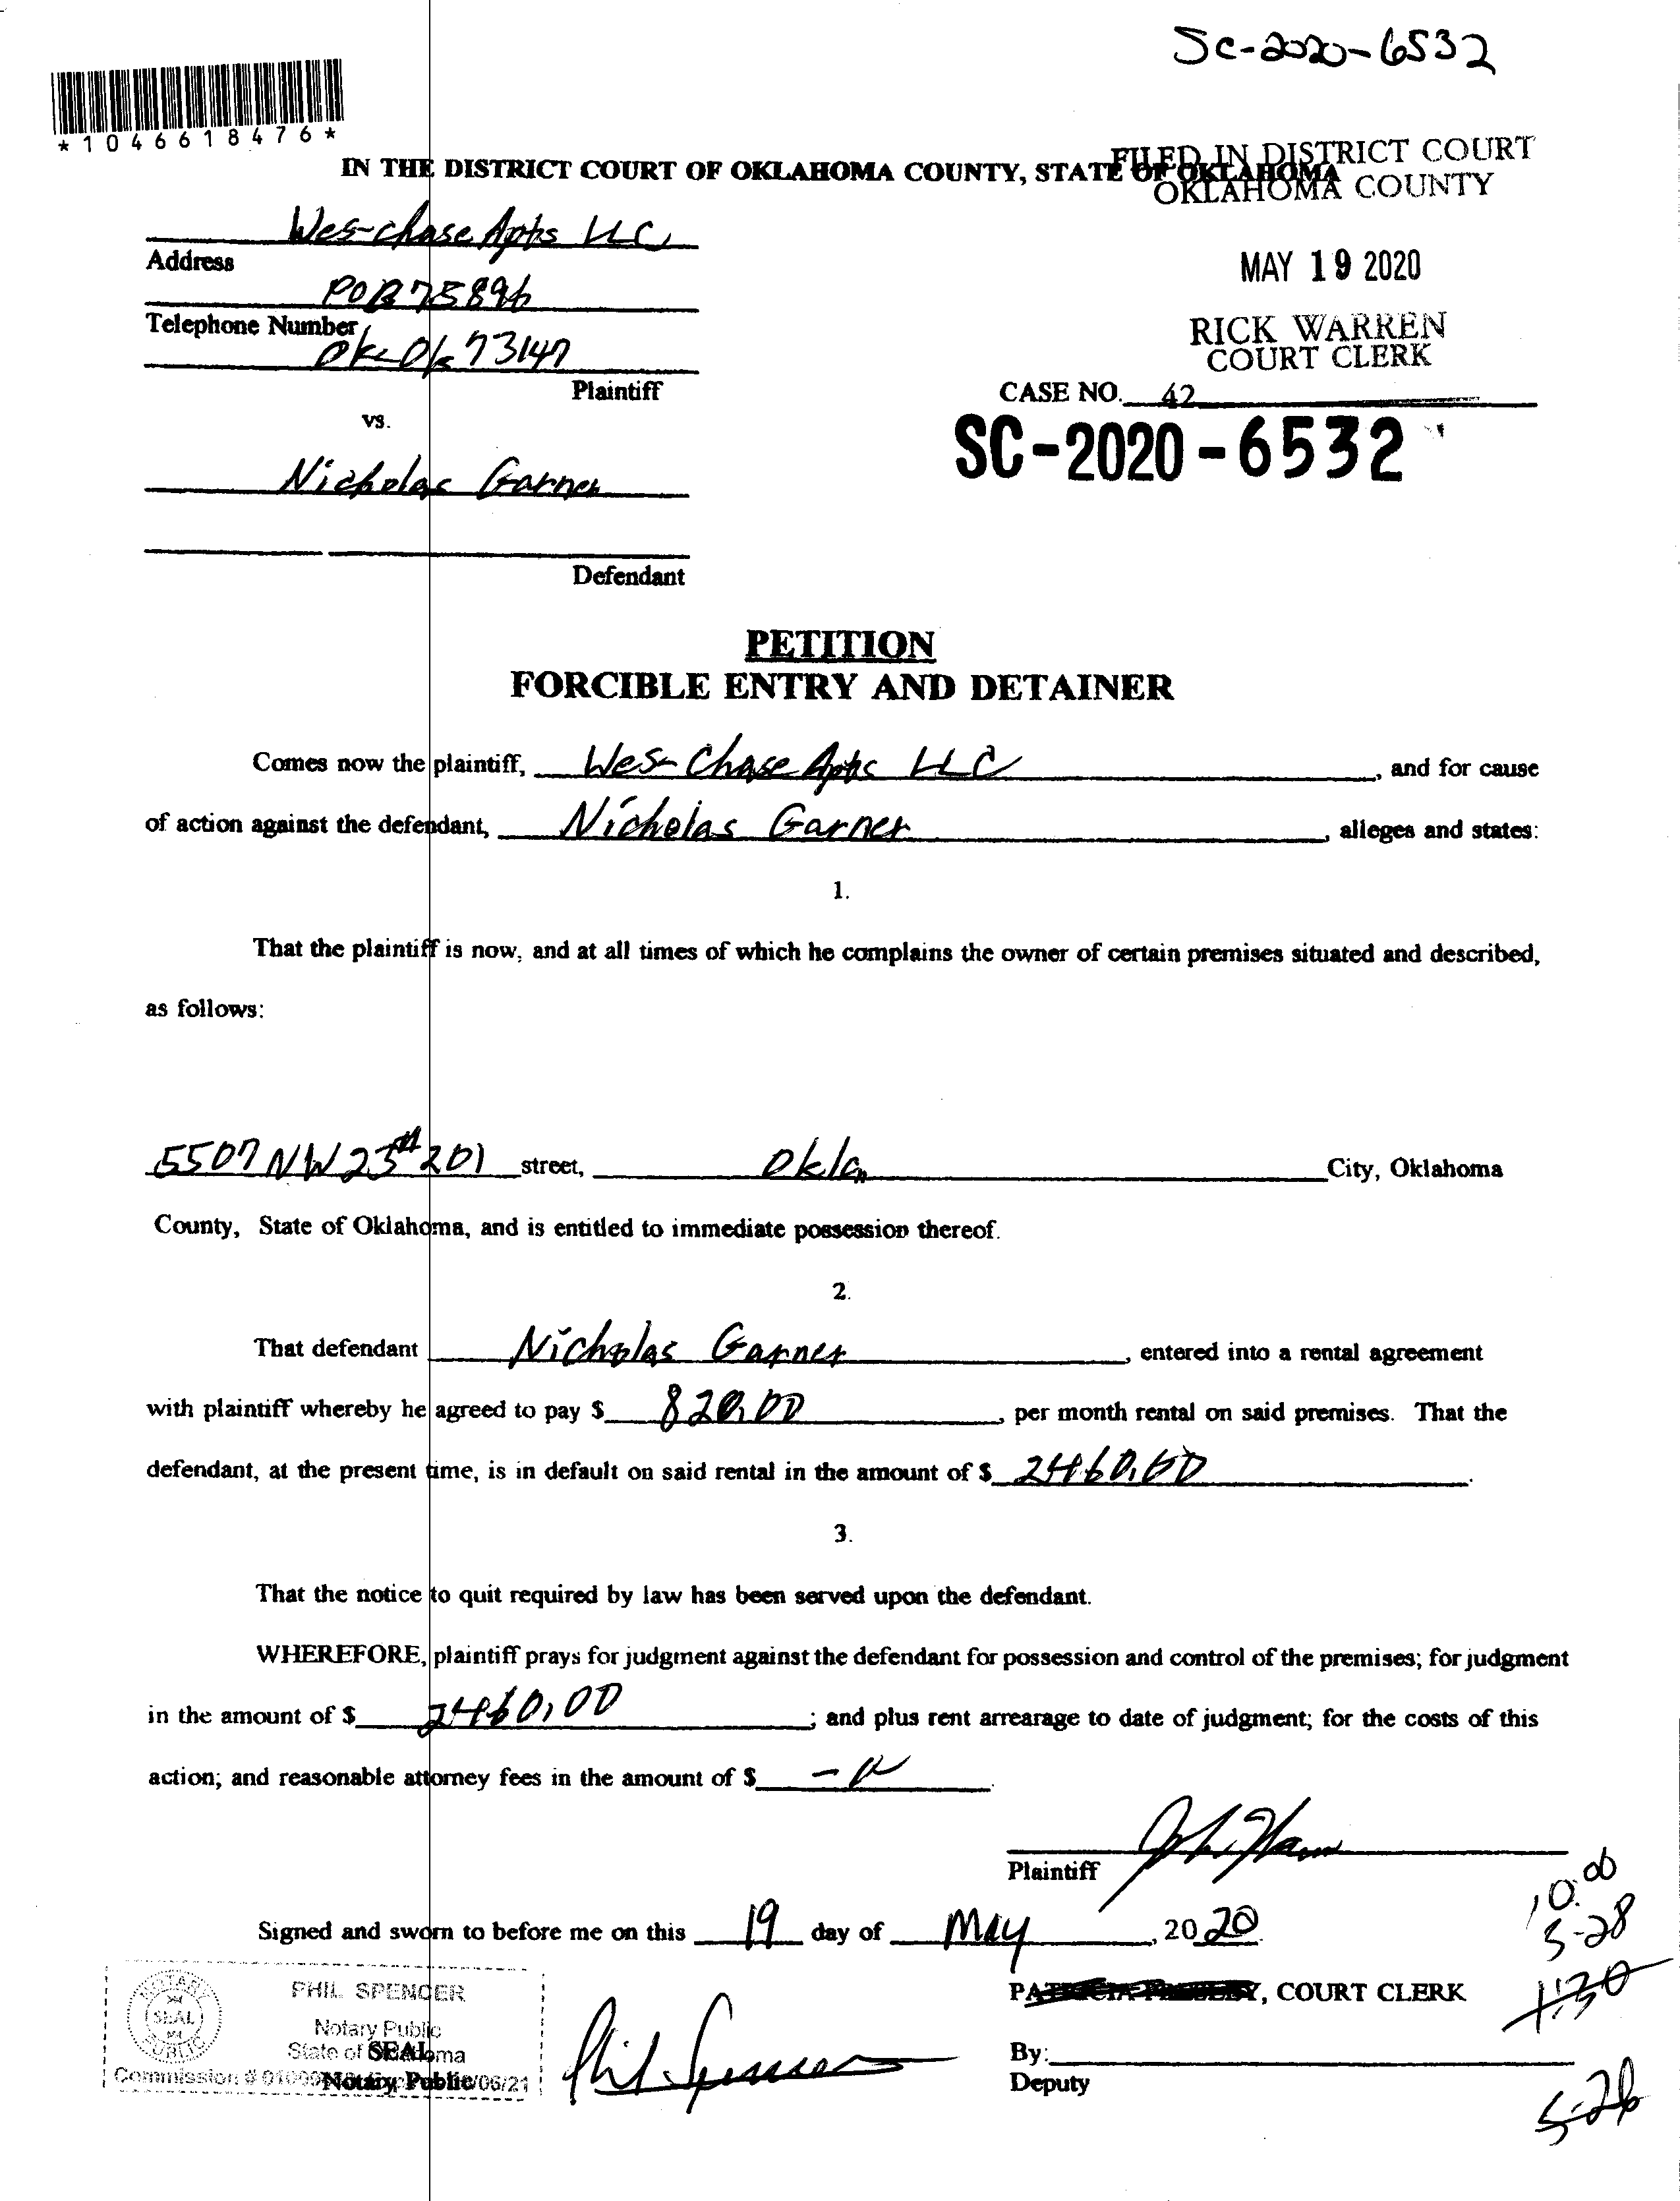 SC-2020-6532
*1046618476*
IN THE DISTRICT COURT OF OKLAHOMA COUNTY, STATE OF OKLAHOMA
FILED IN DISTRICT COURT
OKLAHOMA COUNTY
Wes-chase Apts LLC
Address
MAY 19 2020
POB 75896
Telephone Number
RICK WARREN
COURT CLERK
OK Ok 73147
Plaintiff
CASE NO. 42
vs.
SC-2020-6532
Nicholas Garner
Defendant
PETITION
FORCIBLE ENTRY AND DETAINER
Comes now the plaintiff, Wes-Chase Apts LLC, and for cause
of action against the defendant, Nicholas Garner, alleges and states:
1.
That the plaintiff is now, and at all times of which he complains the owner of certain premises situated and described,
as follows:
5507 NW 23 #201 street, Okla City, Oklahoma
County, State of Oklahoma, and is entitled to immediate possession thereof.
2.
That defendant Nicholas Garner, entered into a rental agreement
with plaintiff whereby he agreed to pay $ 820.00, per month rental on said premises. That the
defendant, at the present time, is in default on said rental in the amount of $ 2460.00.
3.
That the notice to quit required by law has been served upon the defendant.
WHEREFORE, plaintiff prays for judgment against the defendant for possession and control of the premises; for judgment
in the amount of $ 2460.00; and plus rent arrearage to date of judgment; for the costs of this
action; and reasonable attorney fees in the amount of $
Plaintiff
10:00
5-28
Signed and sworn to before me on this 19 day of May, 2020.
PHIL SPENCER
Notary Public
State of Oklahoma
Commission #
NOTARY PUBLIC
SEAL
SEAL
Notary Public
Phil Spencer
, COURT CLERK
1:30
By:
Deputy
5-26